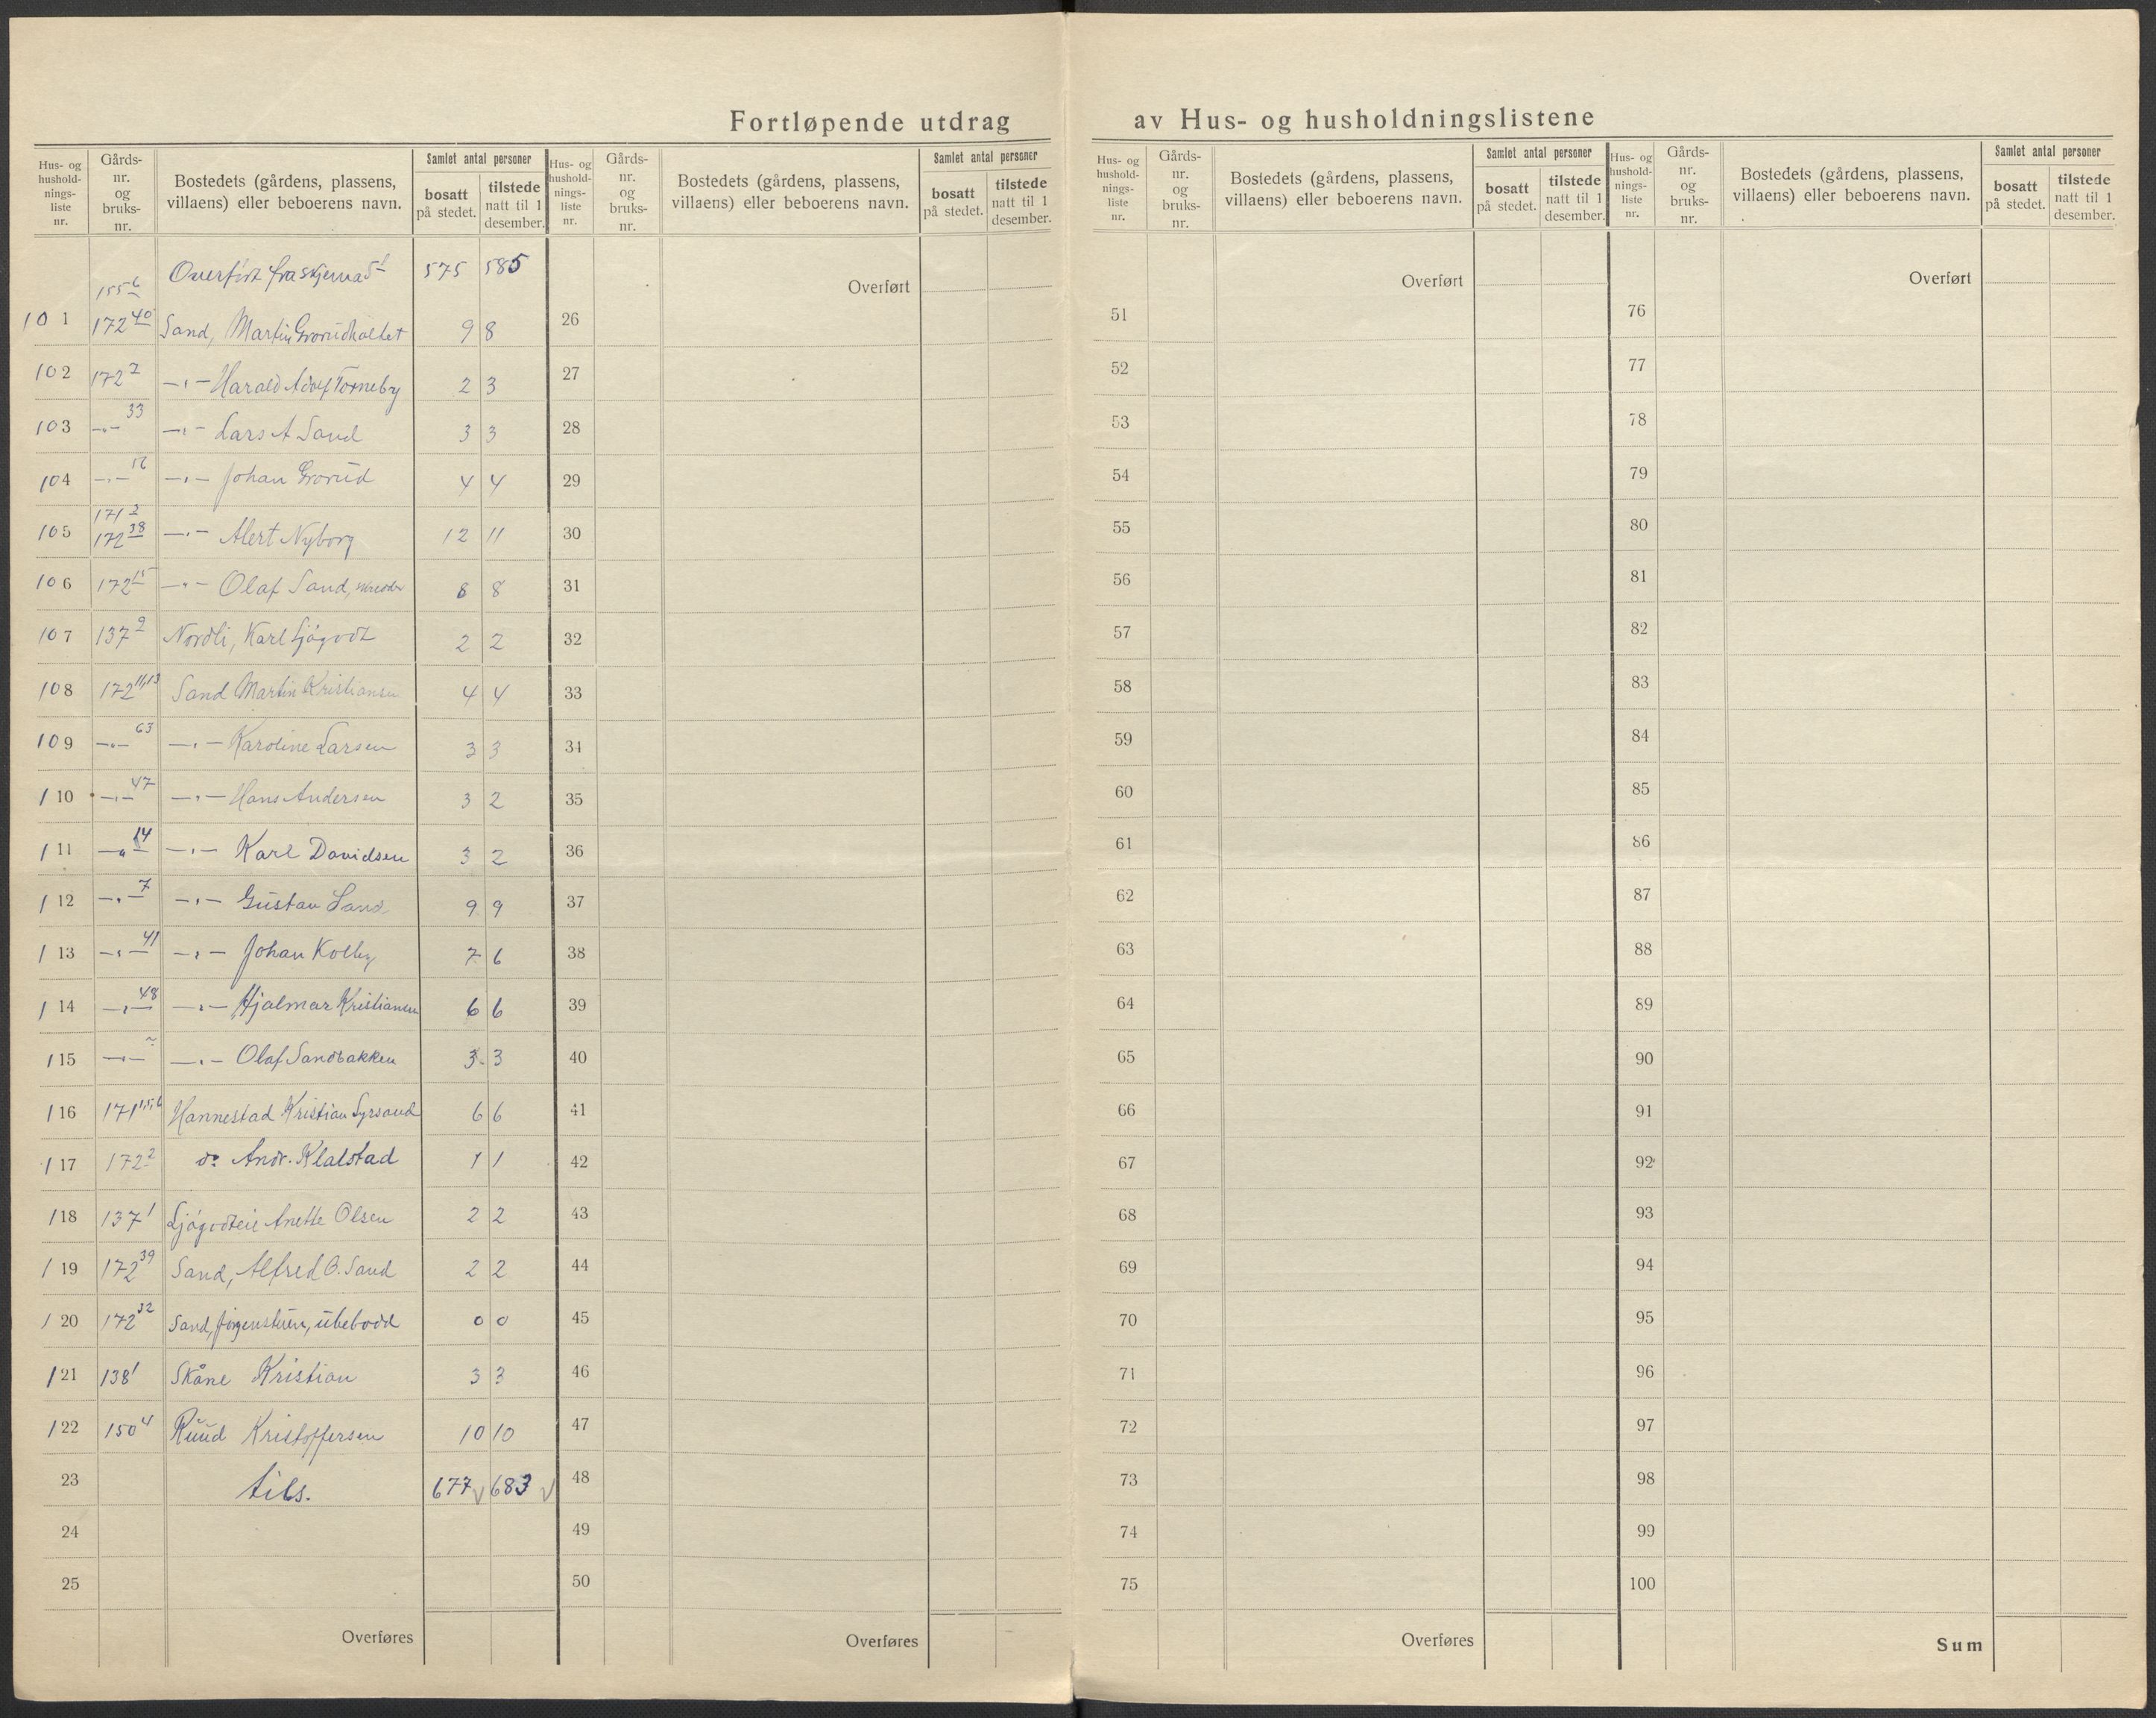 Fortløpende utdrag av Hus- og husholdningslistene
Hus- og hushold-nings-liste nr. Gårds-nr. og bruks-nr. Bostedets (gårdens, plassens, villaens) eller beboerens navn. Samlet antal personer bosatt på stedet. tilstede natt til 1 desember.
Hus- og hushold-nings-liste nr. Gårds-nr. og bruks-nr. Bostedets (gårdens, plassens, villaens) eller beboerens navn. Samlet antal personer bosatt på stedet. tilstede natt til 1 desember.
Hus- og hushold-nings-liste nr. Gårds-nr. og bruks-nr. Bostedets (gårdens, plassens, villaens) eller beboerens navn. Samlet antal personer bosatt på stedet. tilstede natt til 1 desember.
Hus- og hushold-nings-liste nr. Gårds-nr. og bruks-nr. Bostedets (gårdens, plassens, villaens) eller beboerens navn. Samlet antal personer bosatt på stedet. tilstede natt til 1 desember.
Overført fra skjema 575 585
155 6
101 172 40 Sand, Martin Grorudholtet 9 8
102 172 7 —"— Harald Adolf Torneby 2 3
103 —"— 33 —"— Lars A Sand 3 3
104 —"— 16 —"— Johan Grorud 4 4
171 2
105 172 38 —"— Alert Nyborg 12 11
106 172 15 —"— Olaf Sand, 8 8
107 137 9 Nordli, Karl Ljøgodt 2 2
108 172 11,13 Sand Martin Kristiansen 4 4
109 —"— 63 —"— Karoline Larsen 3 3
110 —"— 47 —"— Hans Andersen 3 2
111 —"— 14 —"— Karl Davidsen 3 2
112 —"— 7 —"— Gustav Sand 9 9
113 —"— 41 —"— Johan Kolby 7 6
114 —"— 48 —"— Hjalmar Kristiansen 6 6
115 —"— —"— Olaf Sandbakken 3 3
116 171 1,5,6 Hannestad Kristian Syrsand 6 6
117 172 2 do Andr. Klalstad 1 1
118 137 1 Ljøgodteie Anette Olsen 2 2
119 172 39 Sand, Alfred O. Sand 2 2
120 172 32 Sand, Jørgenstuen, ubebodd 0 0
121 138 1 Skåne Kristian 3 3
122 150 4 Ruud Kristoffersen 10 10
23 tils. 677 683
24
25
Overføres
Overført
26
27
28
29
30
31
32
33
34
35
36
37
38
39
40
41
42
43
44
45
46
47
48
49
50
Overføres
Overført
51
52
53
54
55
56
57
58
59
60
61
62
63
64
65
66
67
68
69
70
71
72
73
74
75
Overføres
Overført
76
77
78
79
80
81
82
83
84
85
86
87
88
89
90
91
92
93
94
95
96
97
98
99
100
Sum